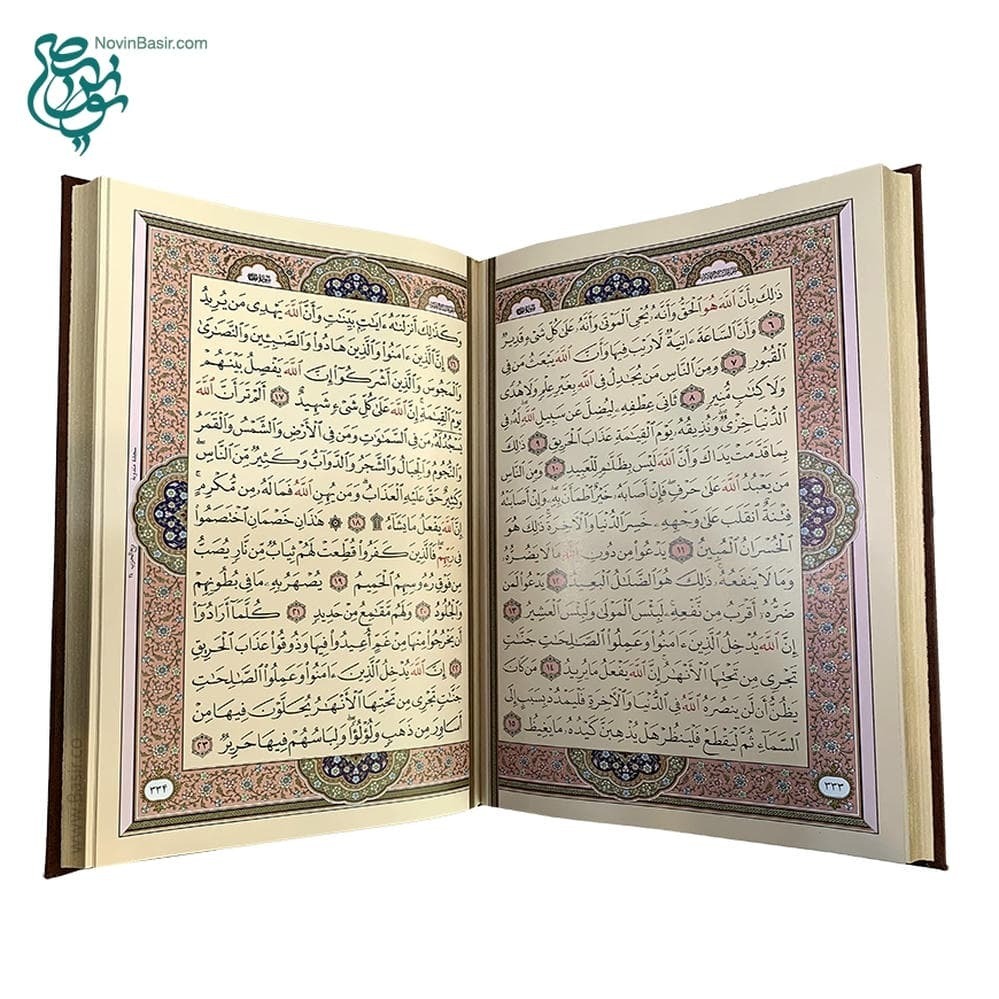 NovinBasir.com
ذَٰلِكَ بِأَنَّ ٱللَّهَ هُوَ ٱلْحَقُّ وَأَنَّهُۥ يُحْىِ ٱلْمَوْتَىٰ وَأَنَّهُۥ عَلَىٰ كُلِّ شَىْءٍ قَدِيرٌ
٦ وَأَنَّ ٱلسَّاعَةَ ءَاتِيَةٌ لَّا رَيْبَ فِيهَا وَأَنَّ ٱللَّهَ يَبْعَثُ مَن فِى
ٱلْقُبُورِ ٧ وَمِنَ ٱلنَّاسِ مَن يُجَٰدِلُ فِى ٱللَّهِ بِغَيْرِ عِلْمٍ وَلَا هُدًى
وَلَا كِتَٰبٍ مُّنِيرٍ ٨ ثَانِىَ عِطْفِهِۦ لِيُضِلَّ عَن سَبِيلِ ٱللَّهِ لَهُۥ فِى
ٱلدُّنْيَا خِزْىٌ وَنُذِيقُهُۥ يَوْمَ ٱلْقِيَٰمَةِ عَذَابَ ٱلْحَرِيقِ ٩ ذَٰلِكَ
بِمَا قَدَّمَتْ يَدَاكَ وَأَنَّ ٱللَّهَ لَيْسَ بِظَلَّٰمٍ لِّلْعَبِيدِ ١٠ وَمِنَ ٱلنَّاسِ
مَن يَعْبُدُ ٱللَّهَ عَلَىٰ حَرْفٍ فَإِنْ أَصَابَهُۥ خَيْرٌ ٱطْمَأَنَّ بِهِۦ وَإِنْ أَصَابَتْهُ
فِتْنَةٌ ٱنقَلَبَ عَلَىٰ وَجْهِهِۦ خَسِرَ ٱلدُّنْيَا وَٱلْءَاخِرَةَ ذَٰلِكَ هُوَ
ٱلْخُسْرَانُ ٱلْمُبِينُ ١١ يَدْعُوا۟ مِن دُونِ ٱللَّهِ مَا لَا يَضُرُّهُۥ
وَمَا لَا يَنفَعُهُۥ ذَٰلِكَ هُوَ ٱلضَّلَٰلُ ٱلْبَعِيدُ ١٢ يَدْعُوا۟ لَمَن
ضَرُّهُۥٓ أَقْرَبُ مِن نَّفْعِهِۦ لَبِئْسَ ٱلْمَوْلَىٰ وَلَبِئْسَ ٱلْعَشِيرُ ١٣
إِنَّ ٱللَّهَ يُدْخِلُ ٱلَّذِينَ ءَامَنُوا۟ وَعَمِلُوا۟ ٱلصَّٰلِحَٰتِ جَنَّٰتٍ
تَجْرِى مِن تَحْتِهَا ٱلْأَنْهَٰرُ إِنَّ ٱللَّهَ يَفْعَلُ مَا يُرِيدُ ١٤ مَن كَانَ
يَظُنُّ أَن لَّن يَنصُرَهُ ٱللَّهُ فِى ٱلدُّنْيَا وَٱلْءَاخِرَةِ فَلْيَمْدُدْ بِسَبَبٍ إِلَى
ٱلسَّمَآءِ ثُمَّ لْيَقْطَعْ فَلْيَنظُرْ هَلْ يُذْهِبَنَّ كَيْدُهُۥ مَا يَغِيظُ ١٥
٣٣٣
وَكَذَٰلِكَ أَنزَلْنَٰهُ ءَايَٰتٍ بَيِّنَٰتٍ وَأَنَّ ٱللَّهَ يَهْدِى مَن يُرِيدُ
١٦ إِنَّ ٱلَّذِينَ ءَامَنُوا۟ وَٱلَّذِينَ هَادُوا۟ وَٱلصَّٰبِـِٔينَ وَٱلنَّصَٰرَىٰ
وَٱلْمَجُوسَ وَٱلَّذِينَ أَشْرَكُوٓا۟ إِنَّ ٱللَّهَ يَفْصِلُ بَيْنَهُمْ
يَوْمَ ٱلْقِيَٰمَةِ إِنَّ ٱللَّهَ عَلَىٰ كُلِّ شَىْءٍ شَهِيدٌ ١٧ أَلَمْ تَرَ أَنَّ ٱللَّهَ
يَسْجُدُ لَهُۥ مَن فِى ٱلسَّمَٰوَٰتِ وَمَن فِى ٱلْأَرْضِ وَٱلشَّمْسُ وَٱلْقَمَرُ
وَٱلنُّجُومُ وَٱلْجِبَالُ وَٱلشَّجَرُ وَٱلدَّوَآبُّ وَكَثِيرٌ مِّنَ ٱلنَّاسِ
وَكَثِيرٌ حَقَّ عَلَيْهِ ٱلْعَذَابُ وَمَن يُهِنِ ٱللَّهُ فَمَا لَهُۥ مِن مُّكْرِمٍ
إِنَّ ٱللَّهَ يَفْعَلُ مَا يَشَآءُ ۩ ١٨ ۞ هَٰذَانِ خَصْمَانِ ٱخْتَصَمُوا۟
فِى رَبِّهِمْ فَٱلَّذِينَ كَفَرُوا۟ قُطِّعَتْ لَهُمْ ثِيَابٌ مِّن نَّارٍ يُصَبُّ
مِن فَوْقِ رُءُوسِهِمُ ٱلْحَمِيمُ ١٩ يُصْهَرُ بِهِۦ مَا فِى بُطُونِهِمْ
وَٱلْجُلُودُ ٢٠ وَلَهُم مَّقَٰمِعُ مِنْ حَدِيدٍ ٢١ كُلَّمَآ أَرَادُوٓا۟
أَن يَخْرُجُوا۟ مِنْهَا مِنْ غَمٍّ أُعِيدُوا۟ فِيهَا وَذُوقُوا۟ عَذَابَ ٱلْحَرِيقِ
٢٢ إِنَّ ٱللَّهَ يُدْخِلُ ٱلَّذِينَ ءَامَنُوا۟ وَعَمِلُوا۟ ٱلصَّٰلِحَٰتِ
جَنَّٰتٍ تَجْرِى مِن تَحْتِهَا ٱلْأَنْهَٰرُ يُحَلَّوْنَ فِيهَا مِنْ
أَسَاوِرَ مِن ذَهَبٍ وَلُؤْلُؤًا وَلِبَاسُهُمْ فِيهَا حَرِيرٌ ٢٣
٣٣۴
www.Basir.co